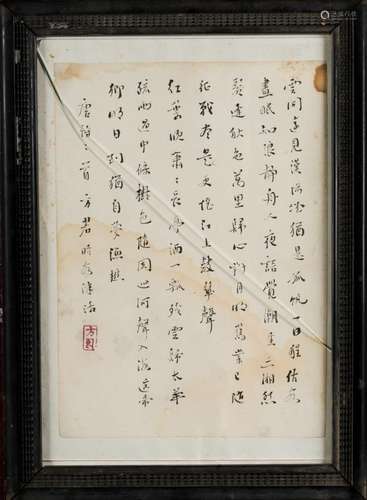 雲開遠見漢陽城猶是孤帆一日程估客
晝眠知浪靜舟人夜語覺潮生三湘愁
鬢逢秋色萬里歸心對月明舊業已隨
征戰盡更堪江上鼓鼙聲
紅葉晚蕭々長亭酒一瓢殘雲歸太華
疏雨過中條樹色隨關迥河聲入海遙帝
鄉明日到猶自夢漁樵
唐詩二首方君時客津沽